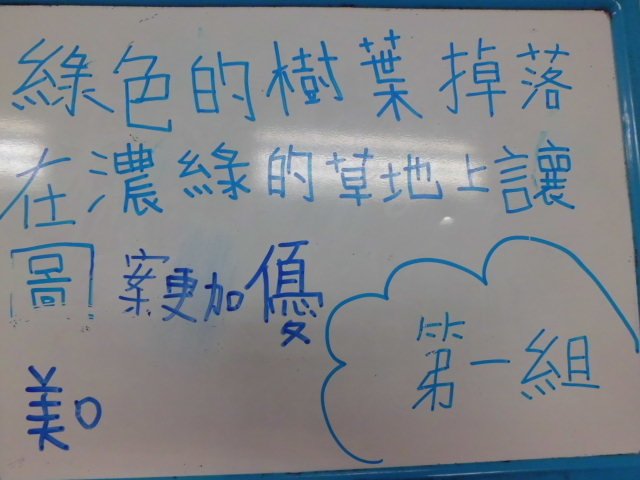 綠色的樹葉掉落
在濃綠的草地上讓
圖案更加優
美。
第一組